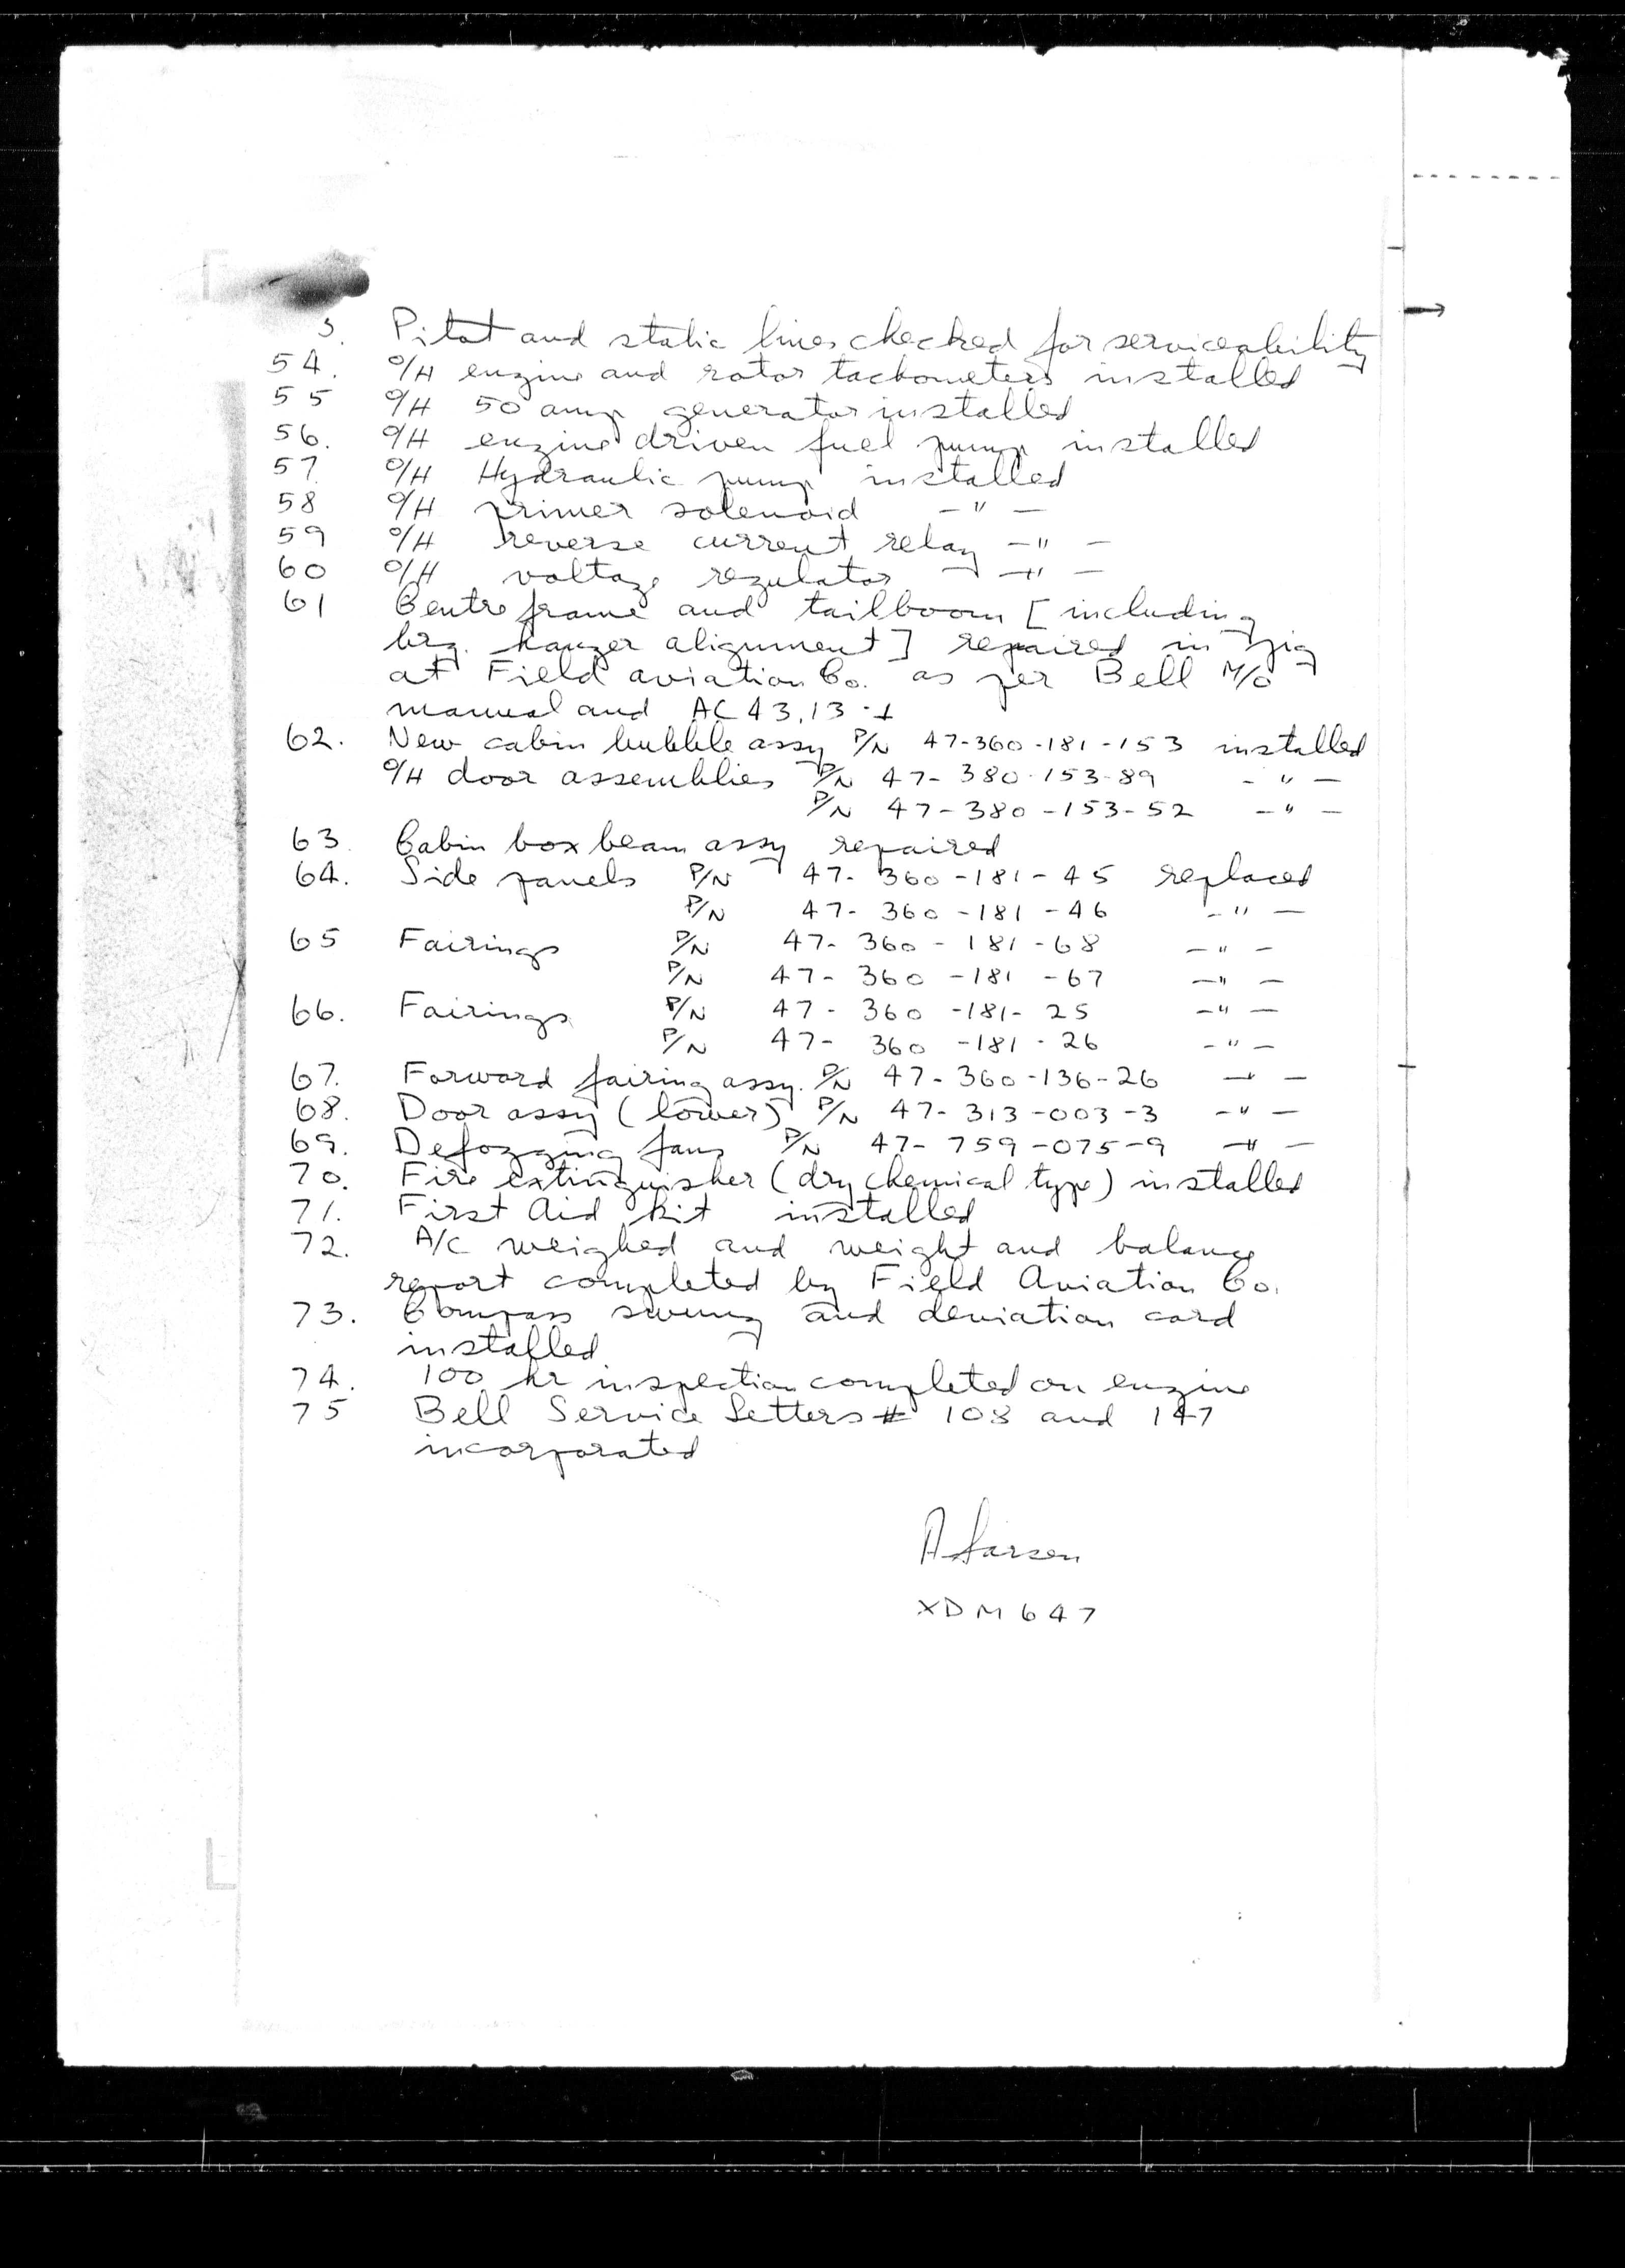 3. Pitot and static lines checked for serviceability
54. O/H engine and rotor tachometers installed
55 O/H 50 amp generator installed
56. O/H engine driven fuel pump installed
57. O/H Hydraulic pump installed
58 O/H primer solenoid -"-
59 O/H reverse current relay -"-
60 O/H voltage regulator -"-
61 Centre frame and tailboom [including
brg. hanger alignment] repaired in jig
at Field aviation Co. as per Bell M/O
manual and AC 43.13-1
62. New cabin bubble assy P/N 47-360-181-153 installed
O/H door assemblies P/N 47-380-153-89 -"-
P/N 47-380-153-52 -"-
63. Cabin box beam assy repaired
64. Side panels P/N 47-360-181-45 replaced
P/N 47-360-181-46 -"-
65 Fairings P/N 47-360-181-68 -"-
P/N 47-360-181-67 -"-
66. Fairings P/N 47-360-181-25 -"-
P/N 47-360-181-26 -"-
67. Forward fairing assy. P/N 47-360-136-26 -"-
68. Door assy (lower) P/N 47-313-003-3 -"-
69. Defogging fans P/N 47-759-075-9 -"-
70. Fire extinguisher (dry chemical type) installed
71. First Aid kit installed
72. A/C weighed and weight and balance
report completed by Field Aviation Co.
73. Compass swung and deviation card
installed
74. 100 hr inspection completed on engine
75 Bell Service Letters # 108 and 147
incorporated
A Larsen
XDM 647